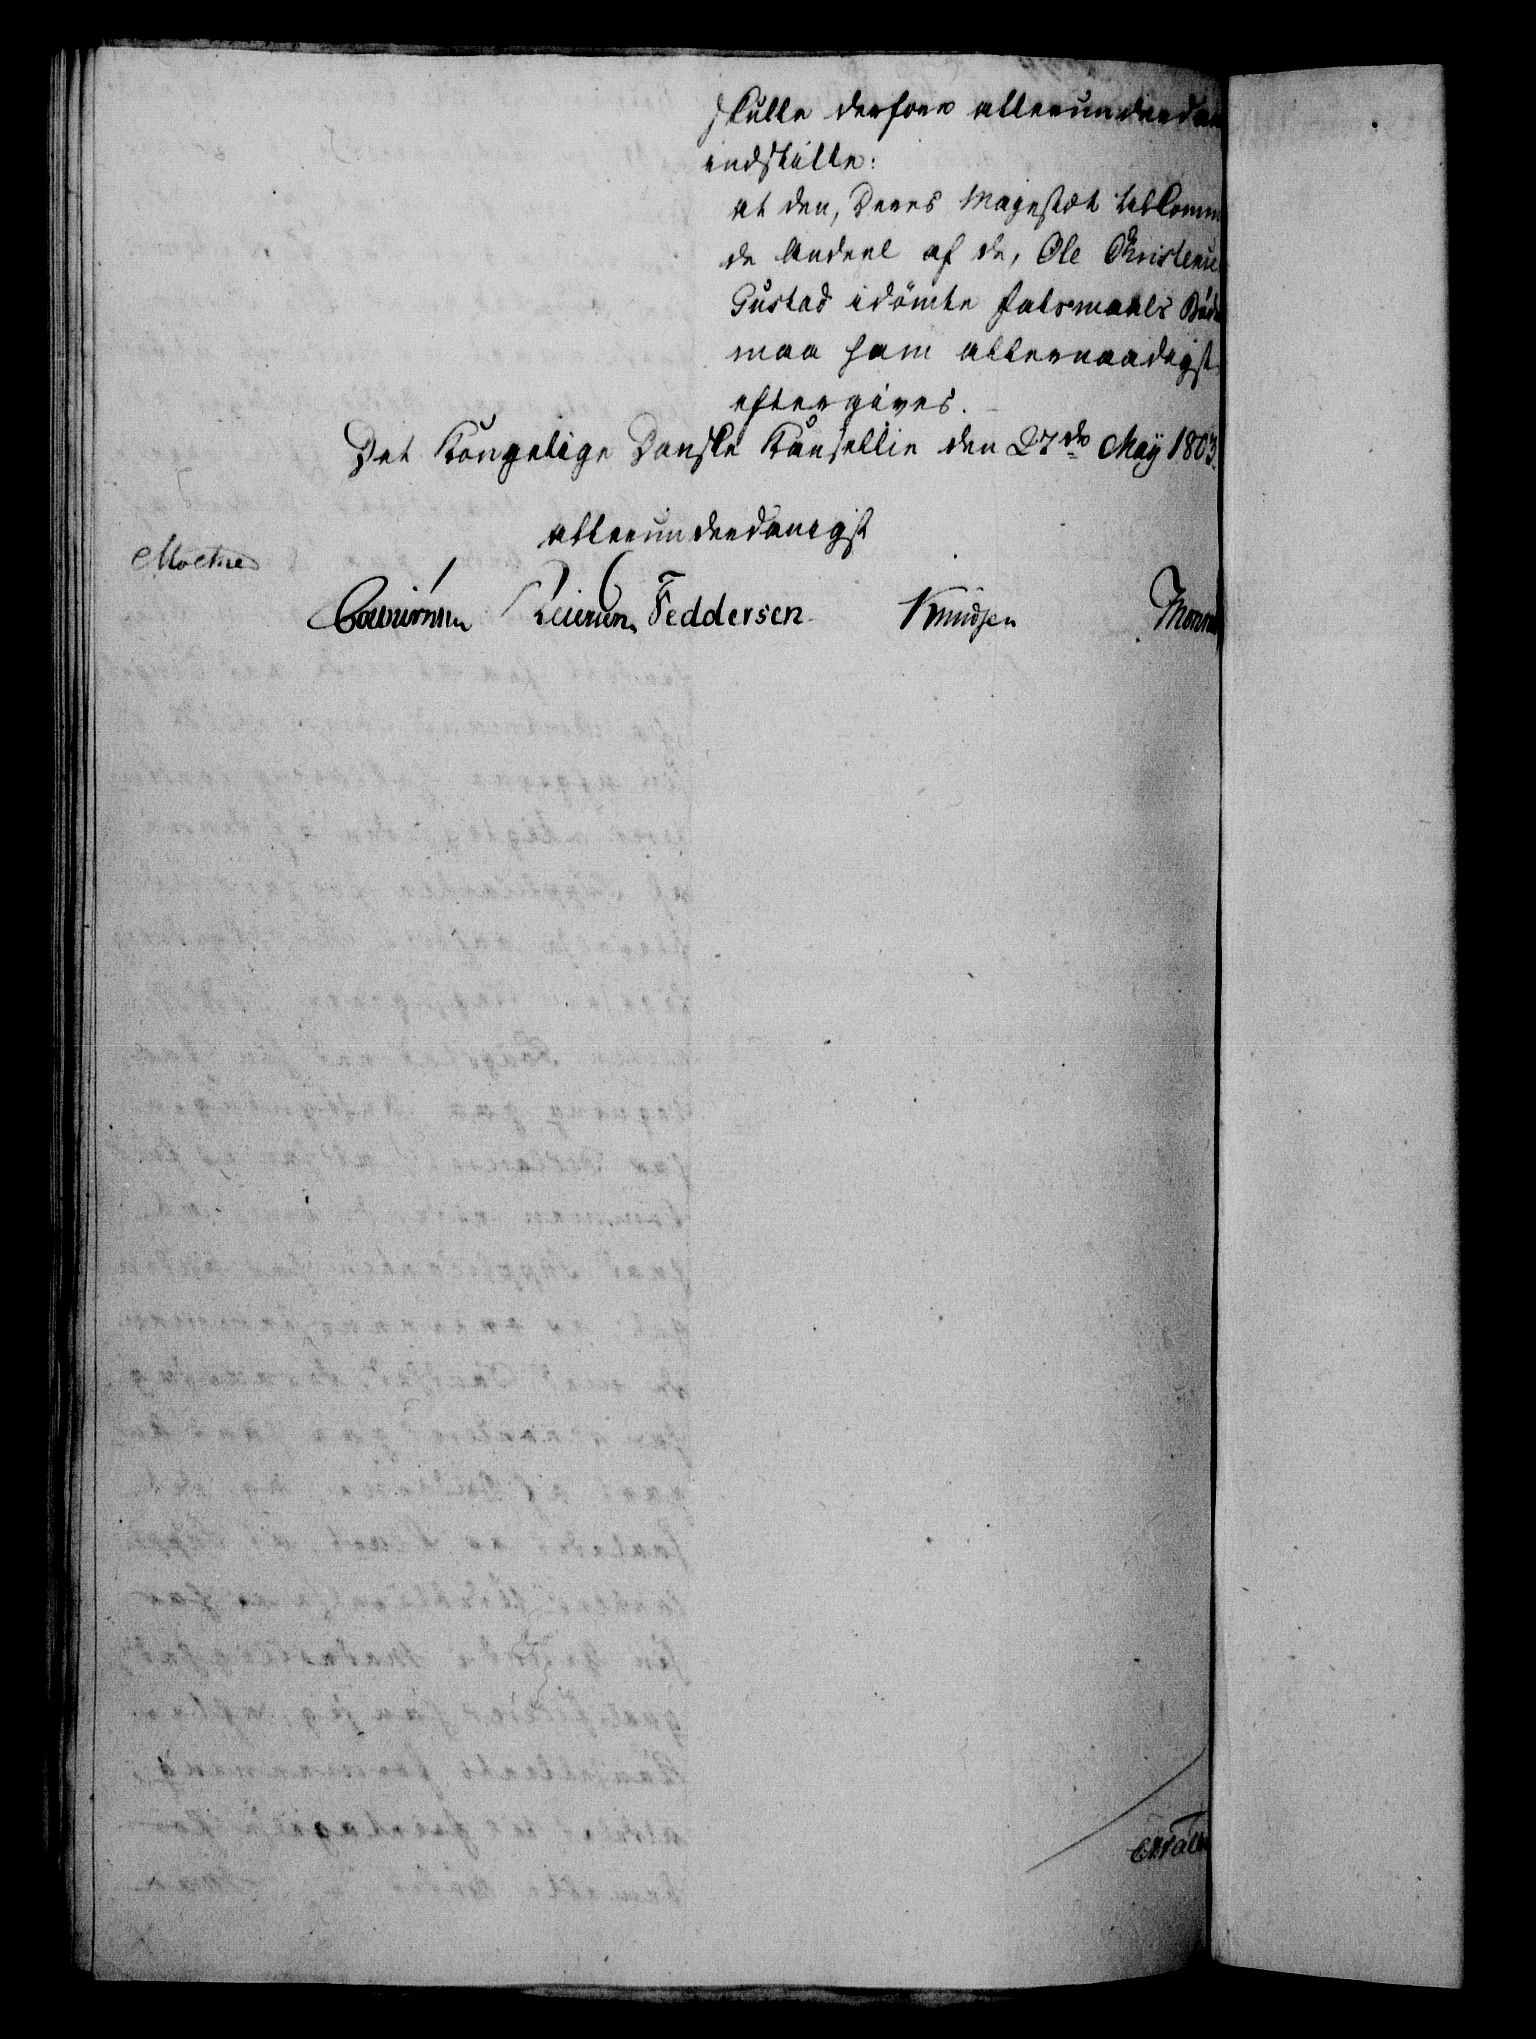 skulle derfore allerunderdan
indstille:
at den, Deres Majestæt tilkomm
de Andeel af de, Ole Christens
Gustad idömte Falsmaals Böde
maa ham allernaadigst
eftergives.
Det Kongelige Danske Kancellie den 27de May 1803.
allerunderdanigst
Moltke
Feddersen Knudsen Monra